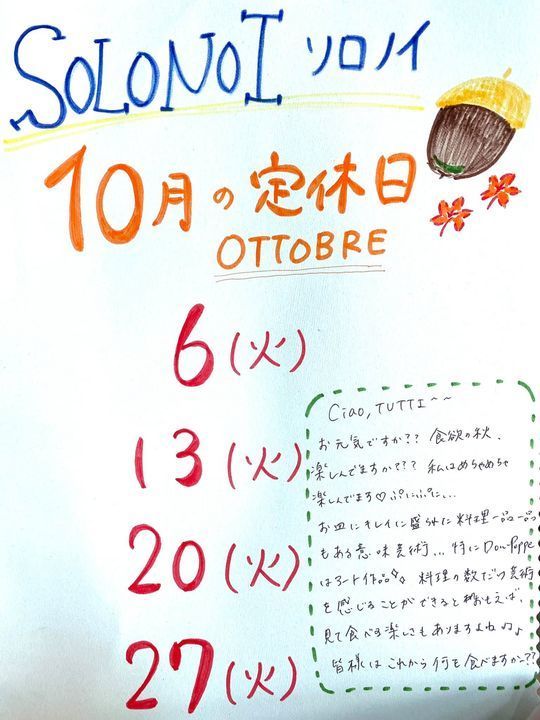 SOLONOI ソロノイ
10月の定休日
OTTOBRE
6(火)
13(火)
20(火)
27(火)
Ciao, TUTTI~~
お元気ですか?? 食欲の秋、
楽しんでますかて?? 私はめちゃめちゃ
楽しんでます♡ぷにぷに...
お皿にキレイに盛られた料理一品一品
もある意味美術... 特にDon-Peppe
はアート作品✧ 料理の数だけ美術
を感じることができるとおもえば
見て食べる楽しさもありますよね♪♪
皆様は これから何を食べますか~??